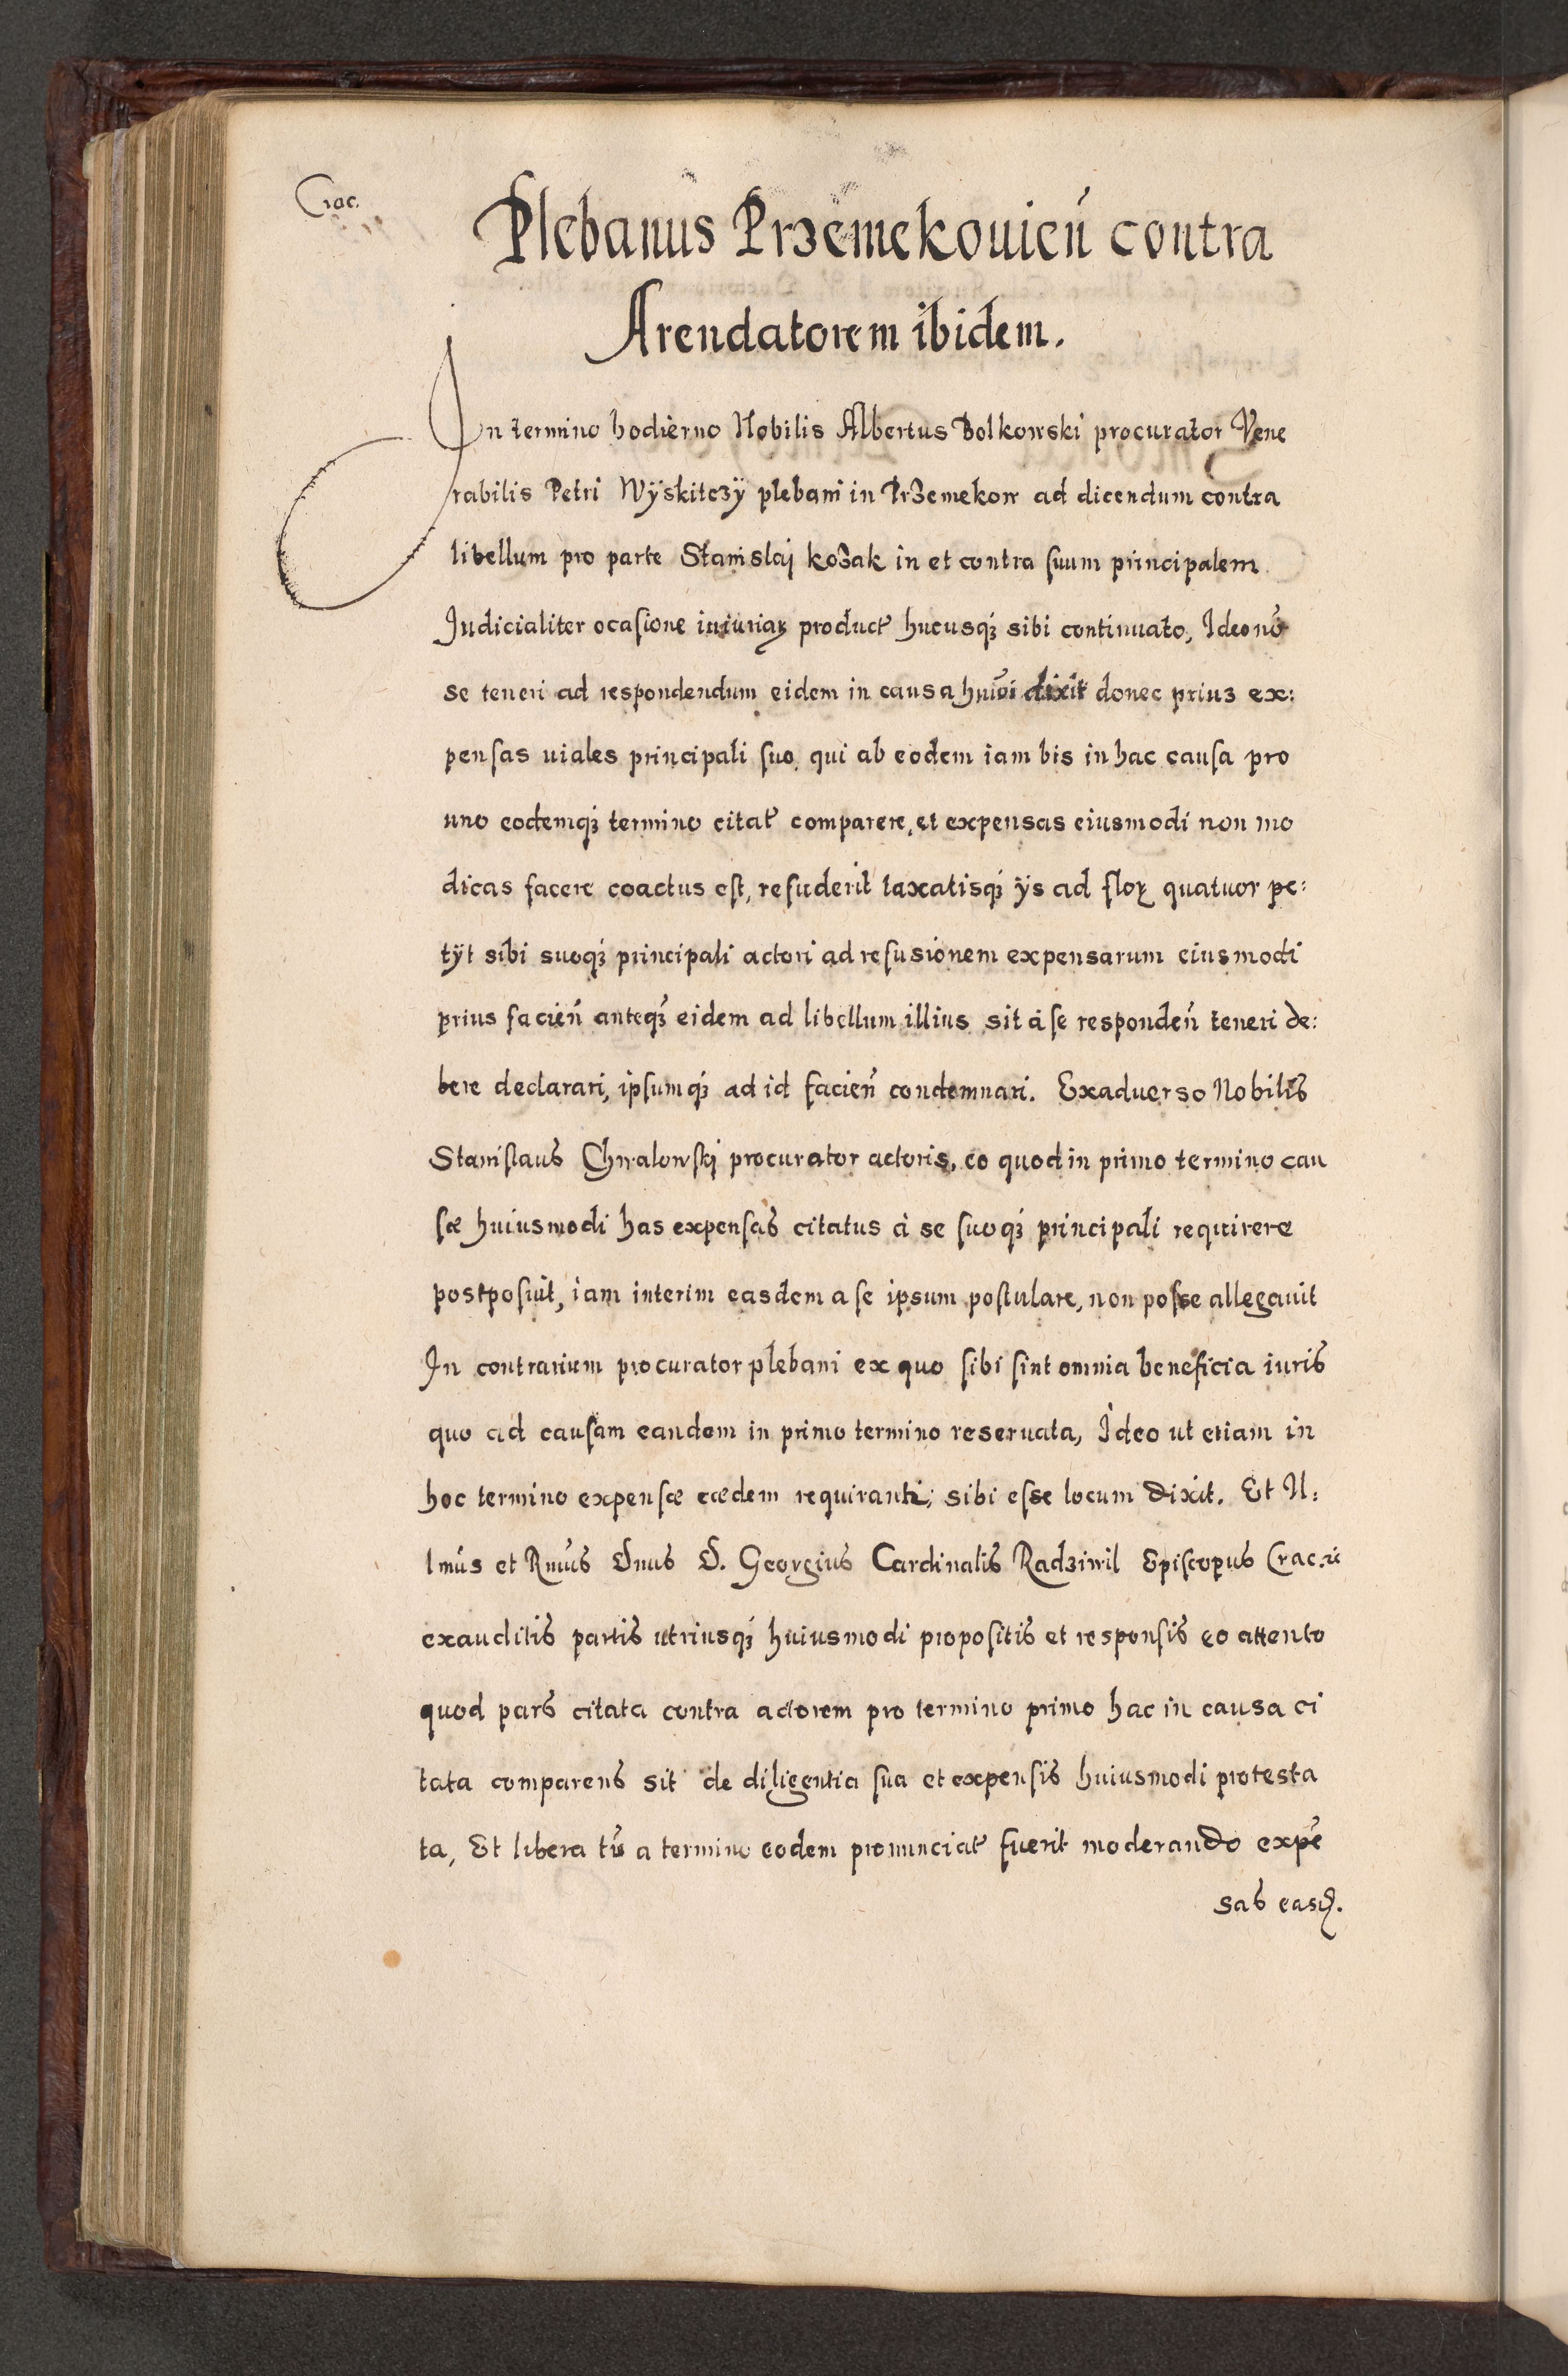 Crac.
Plebanus Przemekouień contra
Arendatorem ibidem.
In termino hodierno Nobilis Albertus Bolkowski procurator Vene
rabilis Petri Wÿskitczÿ plebani in Przemekow ad dicendum contra
libellum pro parte Stanislaj kozak in et contra suum principalem
Judicialiter ocasione iniuriaꝝ product̃ hucusqꝫ sibi continuato, Ideo nõ
se teneri ad respondendum eidem in causa huiõi dixit donec prius ex:
pensas uiales principali suo, qui ab eodem iam bis in hac causa pro
uno eodemqꝫ termino citat̃ comparere, et expensas eiusmodi non mo
dicas facere coactus est, refuderit taxatisqꝫ ÿs ad floꝝ quatuor pe:
tÿt sibi suoqꝫ principali actori ad refusionem expensarum eiusmodi
prius facień anteqꝫ eidem ad libellum illius sit à se respondeń teneri de:
bere declarari, ipsumqꝫ ad id facień condemnari. Exaduerso Nobilis
Stanislaus Chwalowskj procurator actoris, eo quod in primo termino cau
sæ huiusmodi has expensas citatus à se suoqꝫ principali requirere
postposuit, iam interim easdem a se ipsum postulare, non posse allegauit
In contrarium procurator plebani ex quo sibi sint omnia beneficia iuris
quo ad causam eandem in primo termino reseruata, Ideo ut etiam in
hoc termino expensæ eædem requirantr; sibi esse locum dixit. Et Il:
lmũs et Rmũs Dnus D. Georgius Cardinalis Radziwil Episcopus Crac. ꝛc
exauditis partis utriusqꝫ huiusmodi propositis et responsis eo attento
quod pars citata contra actorem pro termino primo hac in causa ci
tata comparens sit de diligentia sua et expensis huiusmodi protesta
ta, Et libera tũ a termino eodem pronunciat̃ fuerit moderando expẽ
sas easd.